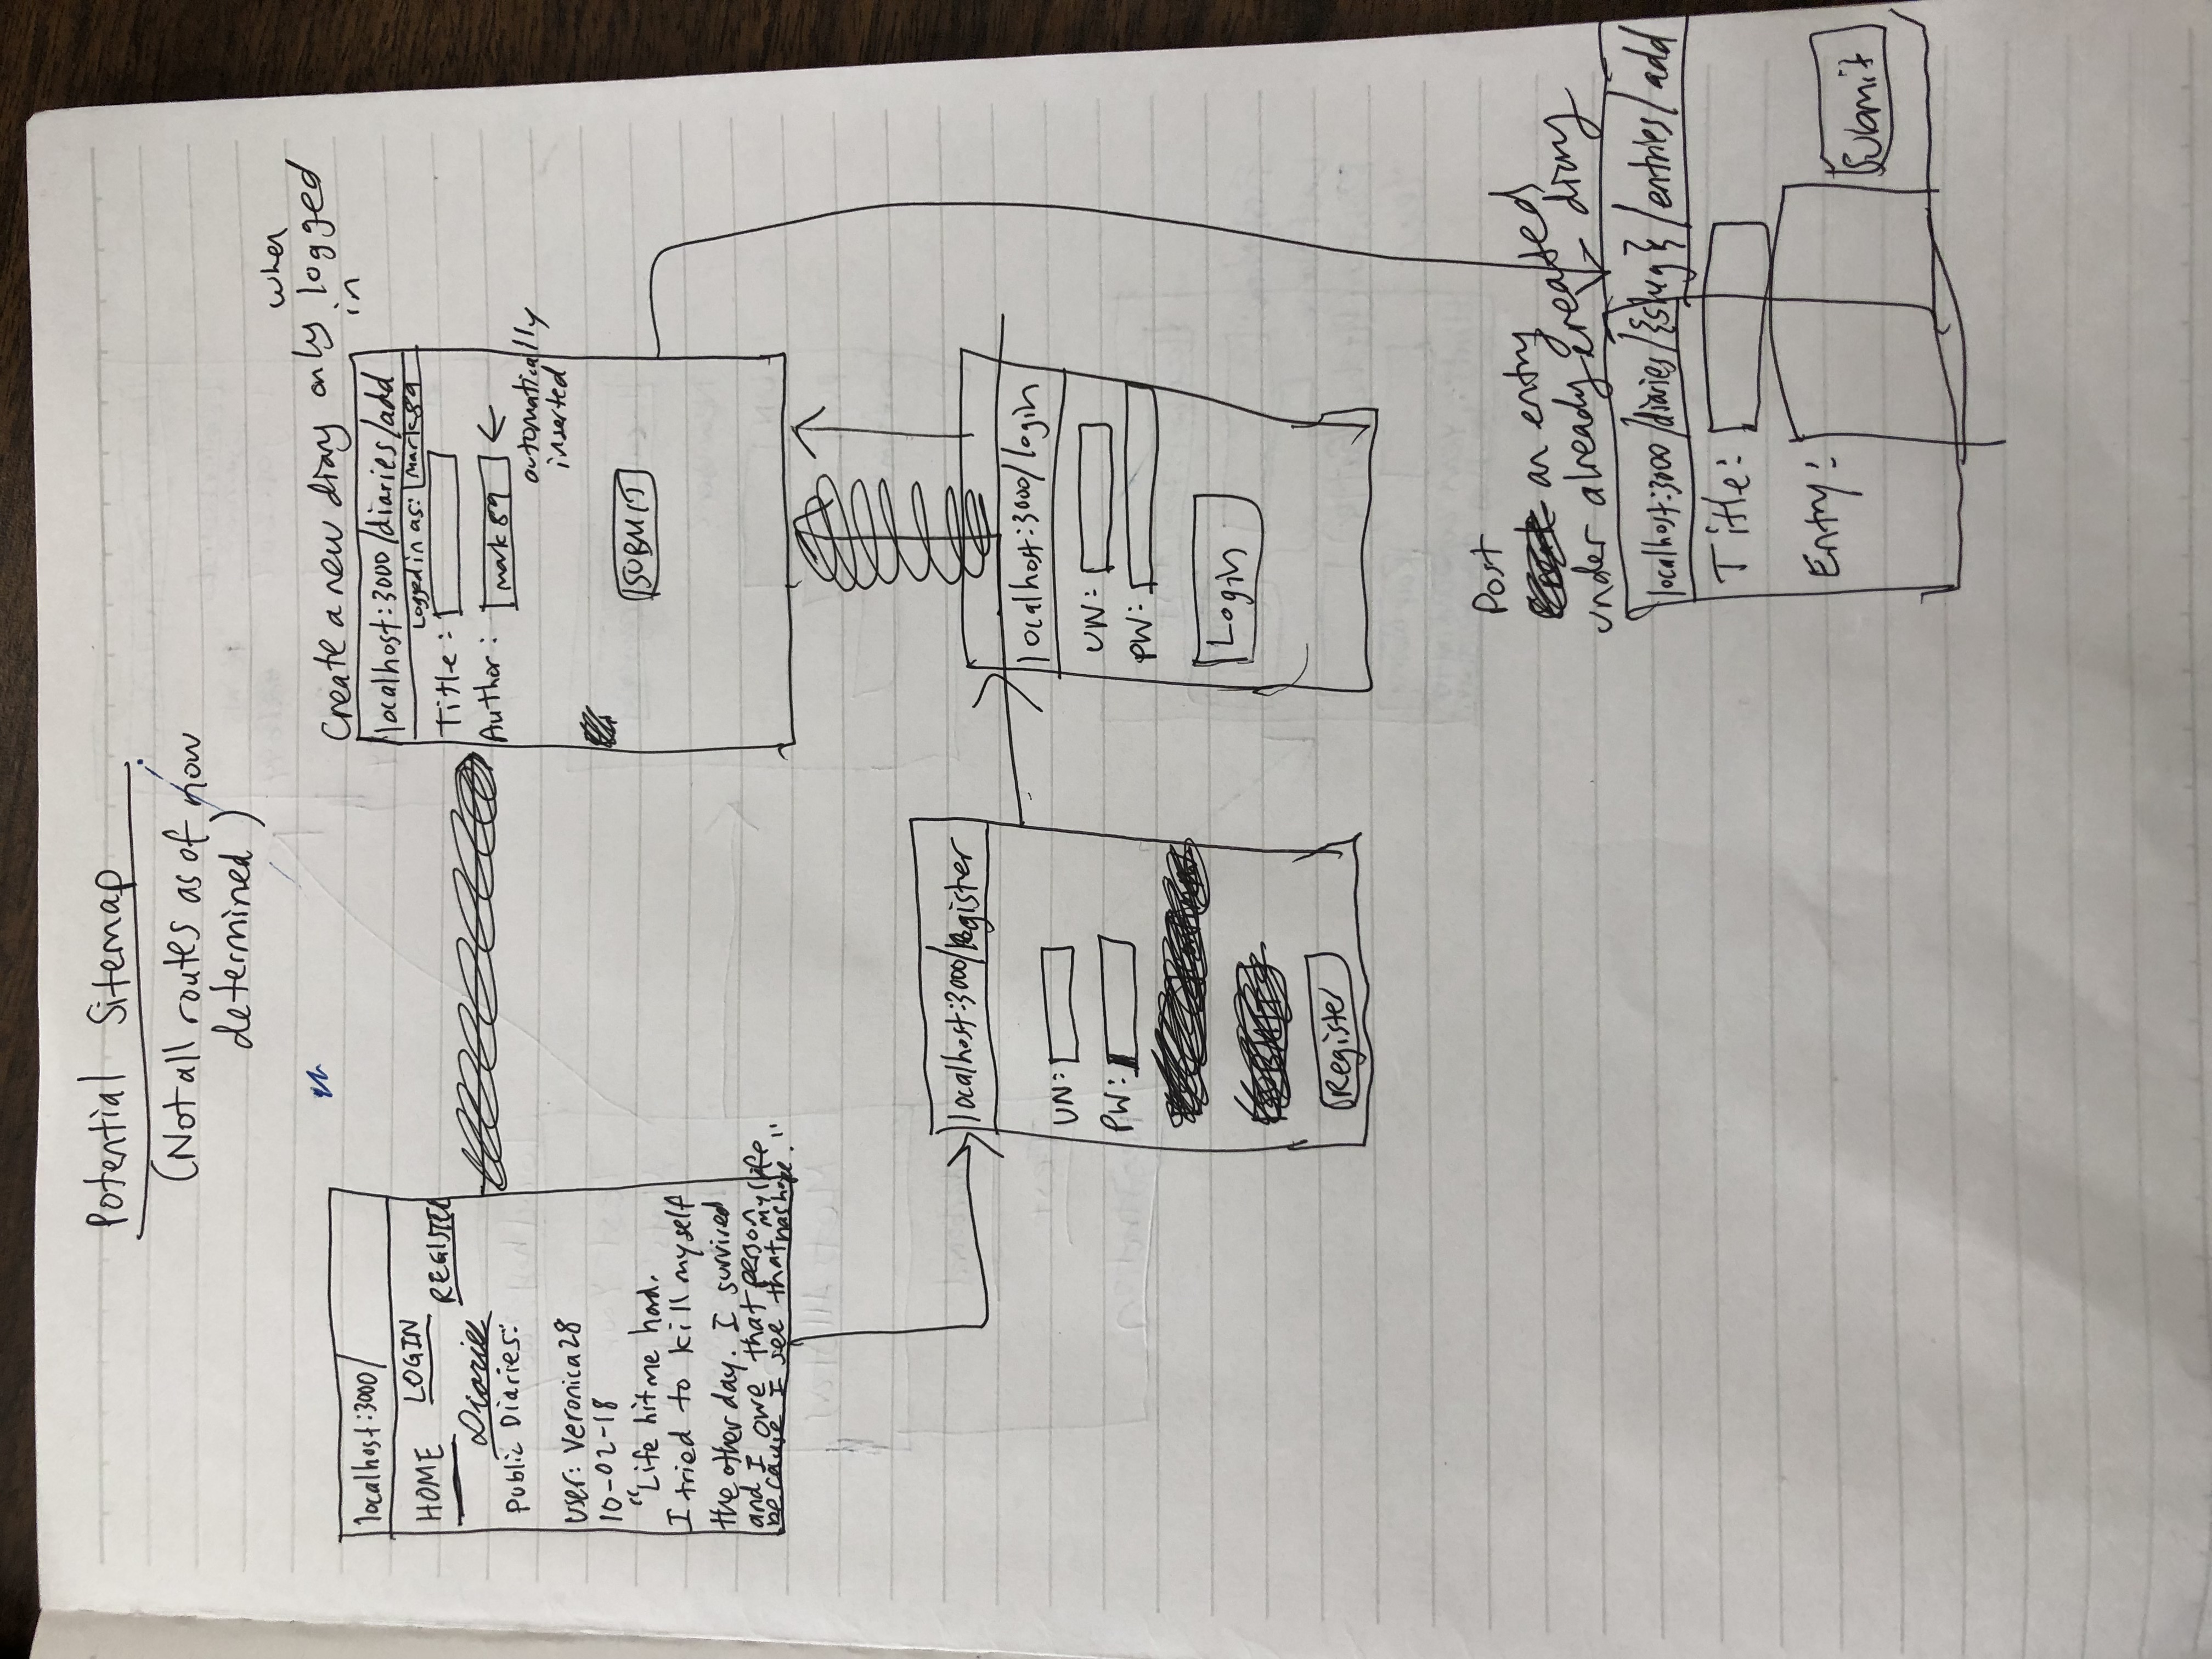 Potential Sitemap
(Not all routes as of now
determined)
localhost:3000/
HOME LOGIN REGISTER
Diaries
Public Diaries:
User: Veronica28
10-02-18
"Life hit me hard.
I tried to kill myself
the other day. I survived
and I owe that person my life
because I see that has hope."
when
Create a new diary only logged
in
localhost:3000/diaries/add
Logged in as: mark89
Title:
Author: mark89
automatically
inserted
SUBMIT
localhost:3000/Register
UN:
PW:
Register
localhost:3000/login
UN:
PW:
Login
Post
an entry
under already created
diary
localhost:3000/diaries/{slug}/entries/add
Title:
Entry:
Submit